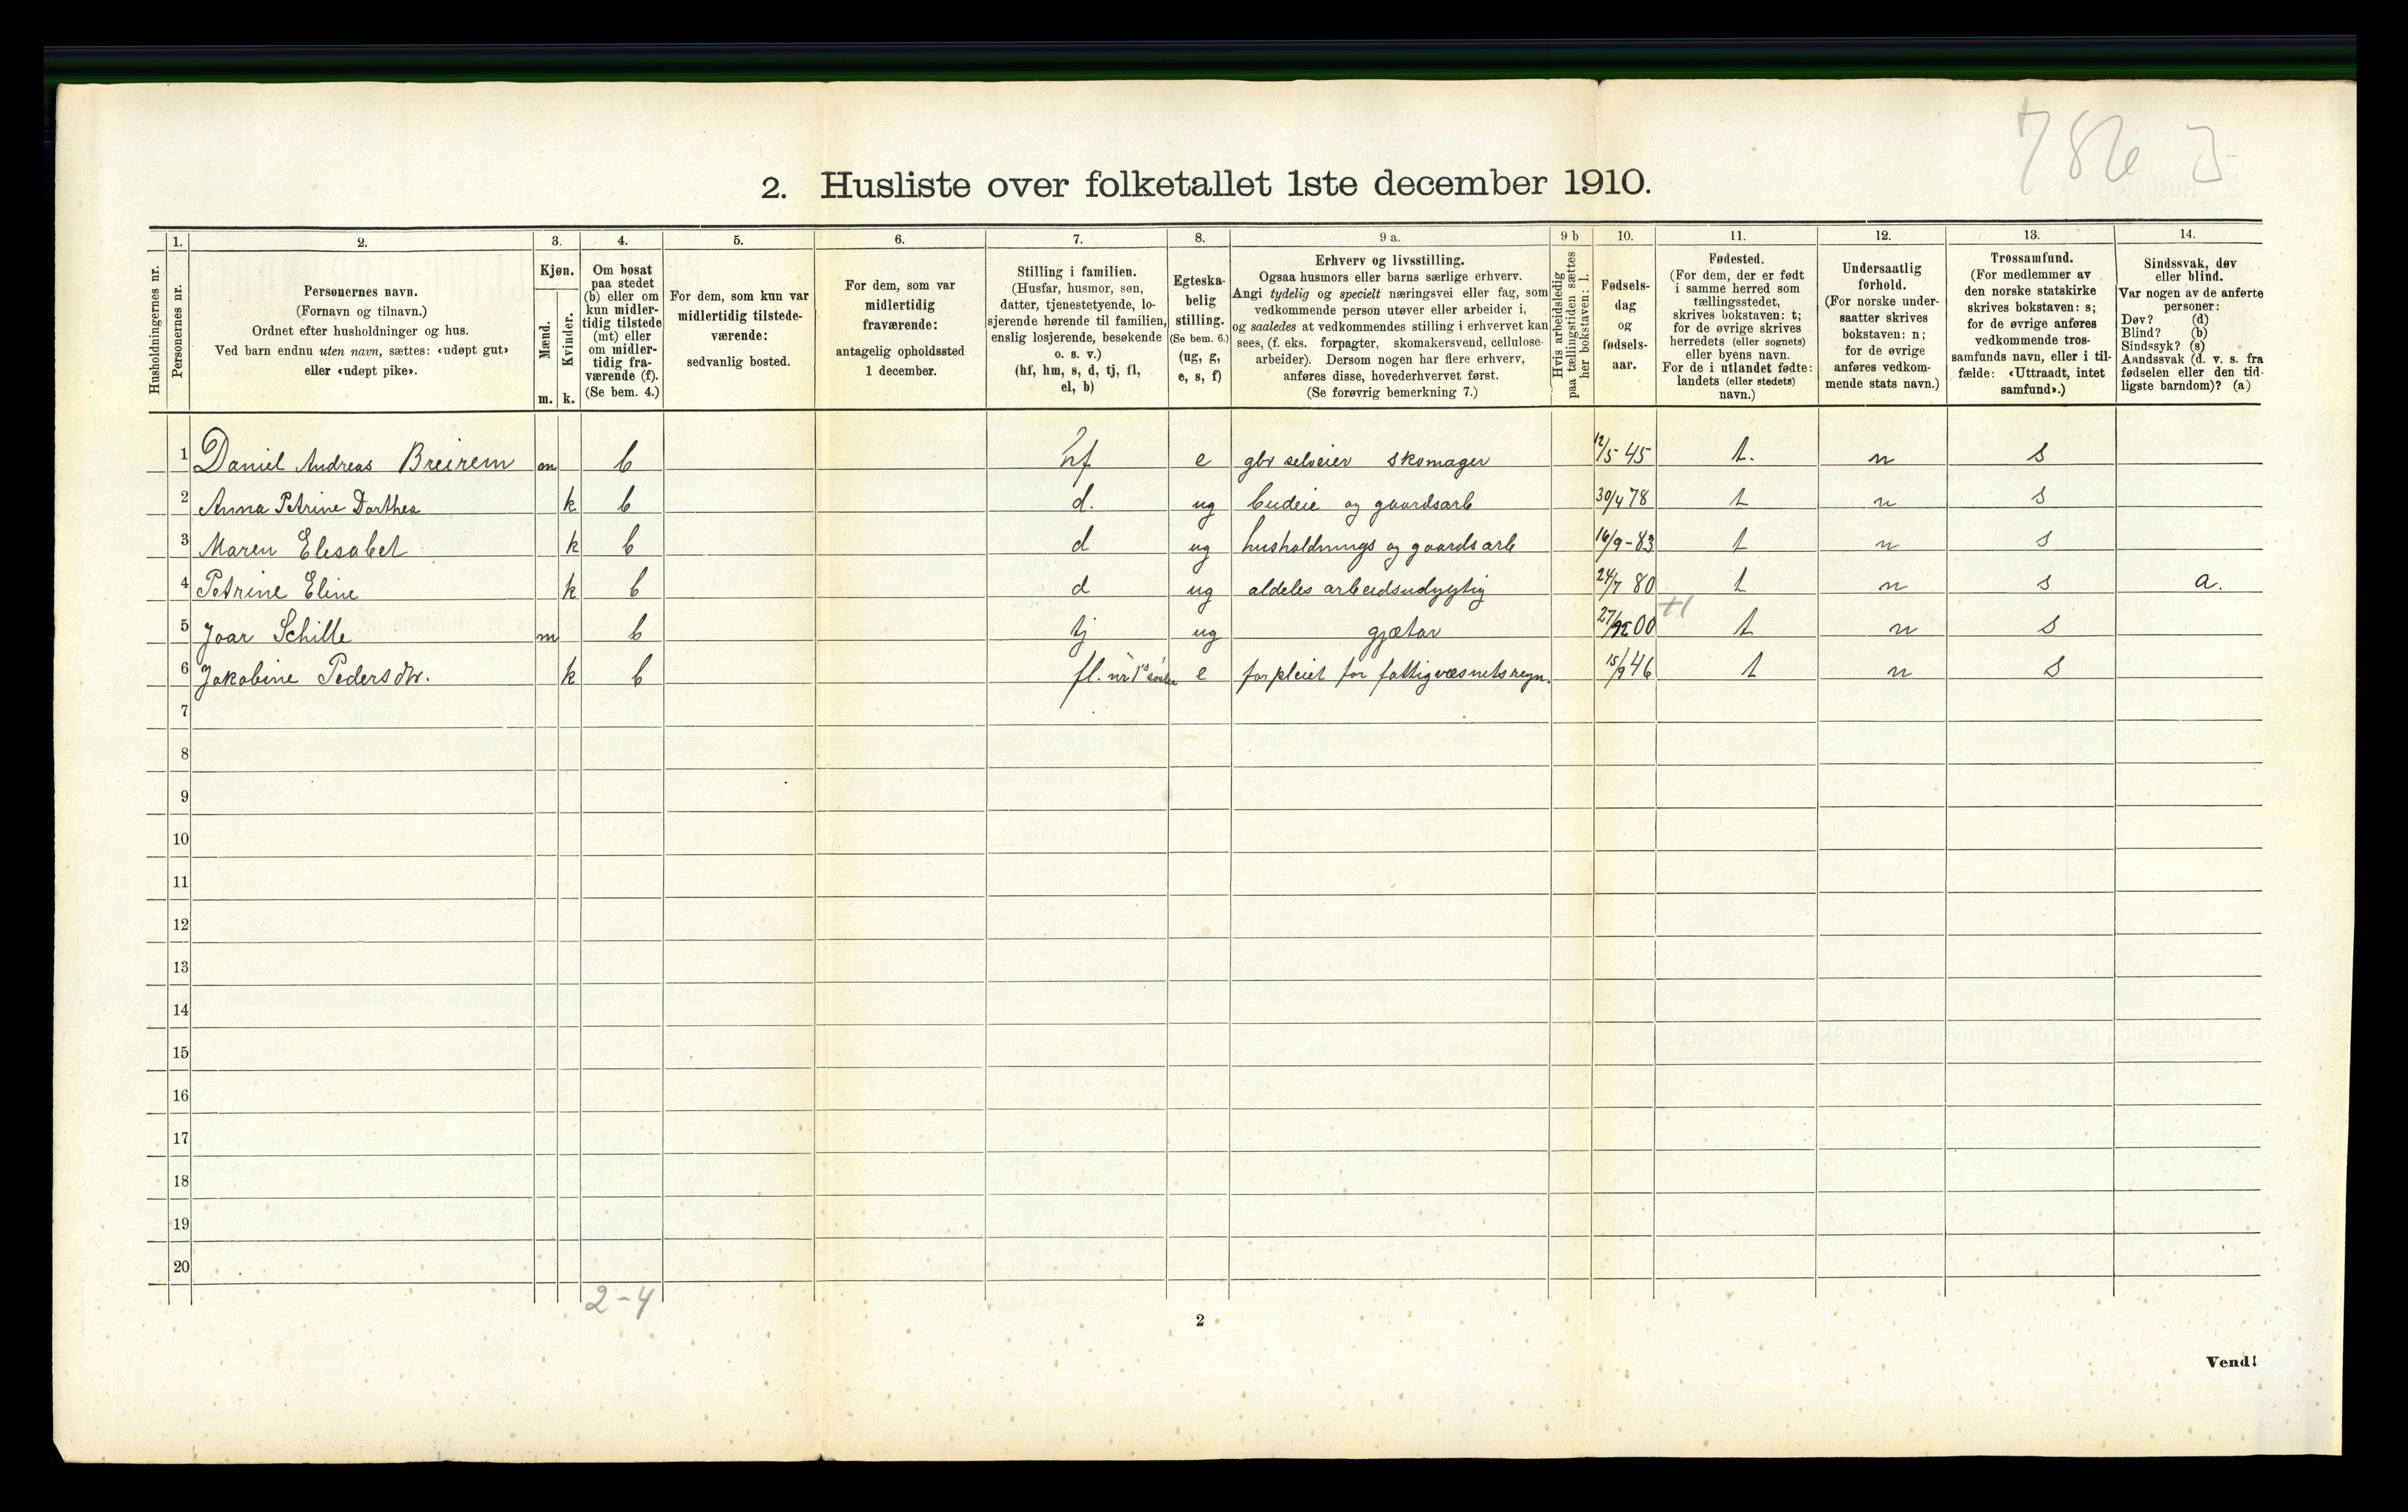 786 J
2. Husliste over folketallet 1ste december 1910.
Husholdningernes nr.
1. Personernes nr.
2. Personernes navn.
(Fornavn og tilnavn.)
Ordnet efter husholdninger og hus.
Ved barn endnu uten navn, sættes: «udøpt gut»
eller «udøpt pike».
3. Kjøn.
Mænd. m.
Kvinder. k.
4. Om bosat
paa stedet
(b) eller om
kun midler-
tidig tilstede
(mt) eller
om midler-
tidig fra-
værende (f).
(Se bem. 4.)
5. For dem, som kun var
midlertidig tilstede-
værende:
sedvanlig bosted.
6. For dem, som var
midlertidig
fraværende:
antagelig opholdssted
1 december.
7. Stilling i familien.
(Husfar, husmor, søn,
datter, tjenestetyende, lo-
sjerende hørende til familien,
enslig losjerende, besøkende
o. s. v.)
(hf, hm, s, d, tj, fl,
el, b)
8. Egteska-
belig
stilling.
(Se bem. 6.)
(ug, g,
e, s, f)
9 a. Erhverv og livsstilling.
Ogsaa husmors eller barns særlige erhverv.
Angi tydelig og specielt næringsvei eller fag, som
vedkommende person utøver eller arbeider i,
og saaledes at vedkommendes stilling i erhvervet kan
sees, (f. eks. forpagter, skomakersvend, cellulose-
arbeider). Dersom nogen har flere erhverv,
anføres disse, hovederhvervet først.
(Se forøvrig bemerkning 7.)
9 b Hvis arbeidsledig
paa tællingstiden sættes
her bokstaven: l.
10. Fødsels-
dag
og
fødsels-
aar.
11. Fødested.
(For dem, der er født
i samme herred som
tællingsstedet,
skrives bokstaven: t;
for de øvrige skrives
herredets (eller sognets)
eller byens navn.
For de i utlandet fødte:
landets (eller stedets)
navn.)
12. Undersaatlig
forhold.
(For norske under-
saatter skrives
bokstaven: n;
for de øvrige
anføres vedkom-
mende stats navn.)
13. Trossamfund.
(For medlemmer av
den norske statskirke
skrives bokstaven: s;
for de øvrige anføres
vedkommende tros-
samfunds navn, eller i til-
fælde: «Uttraadt, intet
samfund».)
14. Sindssvak, døv
eller blind.
Var nogen av de anførte
personer:
Døv? (d)
Blind? (b)
Sindssyk? (s)
Aandssvak (d. v. s. fra
fødselen eller den tid-
ligste barndom)? (a)
1 Daniel Andreas Breirem m b hf e gbr selveier skomager 12/5 45 t. n s
2 Anna Petrine Dorthea k b d. ug budeie og gaardsarb 30/4 78 t n s
3 Maren Elesabet k b d ug husholdnings og gaardsarb 16/9-83 t n s
4 Petrine Eline k b d ug aldeles arbeidsudygtig 24/7 80 t n s a.
5 Joar Schille m b tj ug gjætar 27/12 00 t n s
6 Jakobine Pedersdtr. k b fl. nr 1's e forpleiet for fattigvæsnets regn. 15/9 46 t n s
7
8
9
10
11
12
13
14
15
16
17
18
19
20
2-4
2
Vend!